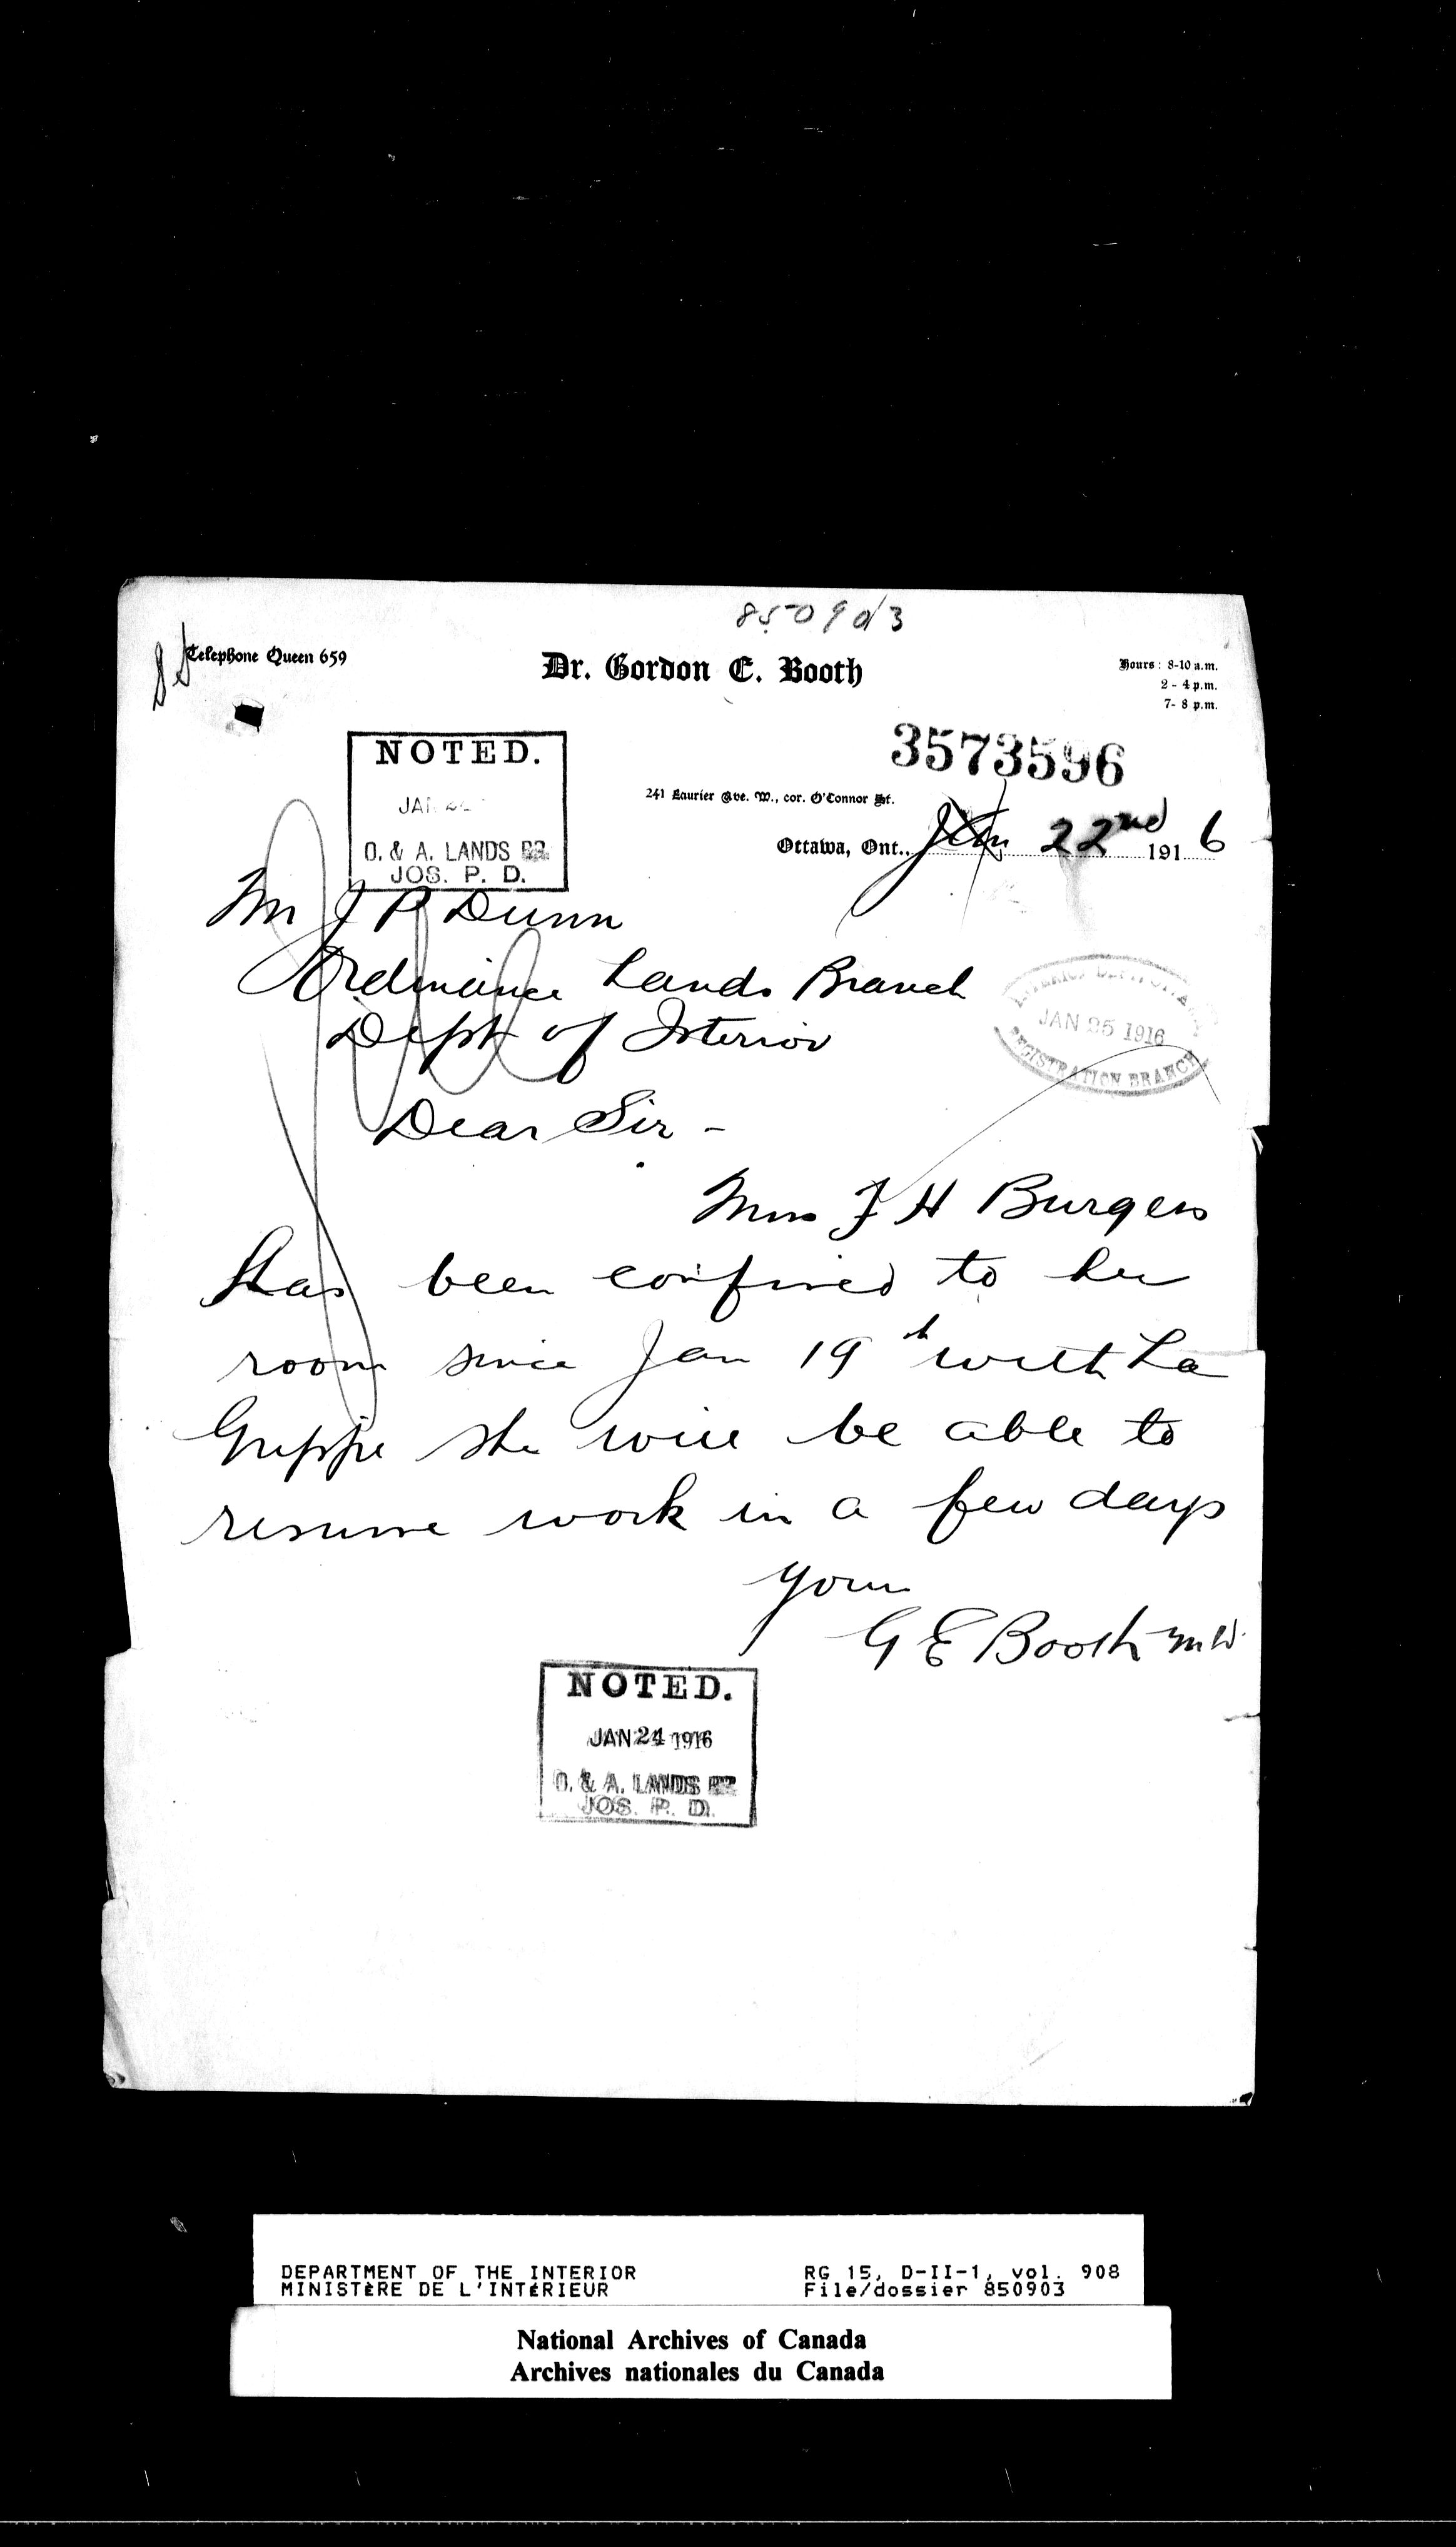 850903
Telephone Queen 659
Dr. Gordon E. Booth
Hours: 8-10 a.m.
2 - 4 p.m.
7- 8 p.m.
3573596
NOTED.
JAN
O. & A. LANDS BR
JOS. P. D.
241 Laurier Ave. W., cor. O'Connor St.
Ottawa, Ont., Jan 22nd 1916
Mr J P Dunn
Ordinance Lands Branch
Dept of Interior
JAN 25 1916
REGISTRATION BRANCH
Dear Sir -
Miss F H Burgess
has been confined to her
room since Jan 19th with La
Grippe she will be able to
resume work in a few days
Yours
G E Booth MD.
NOTED.
JAN 24 1916
O. & A. LANDS BR
JOS. P. D.
DEPARTMENT OF THE INTERIOR
MINISTÈRE DE L'INTÉRIEUR
RG 15, D-II-1, vol. 908
File/dossier 850903
National Archives of Canada
Archives nationales du Canada